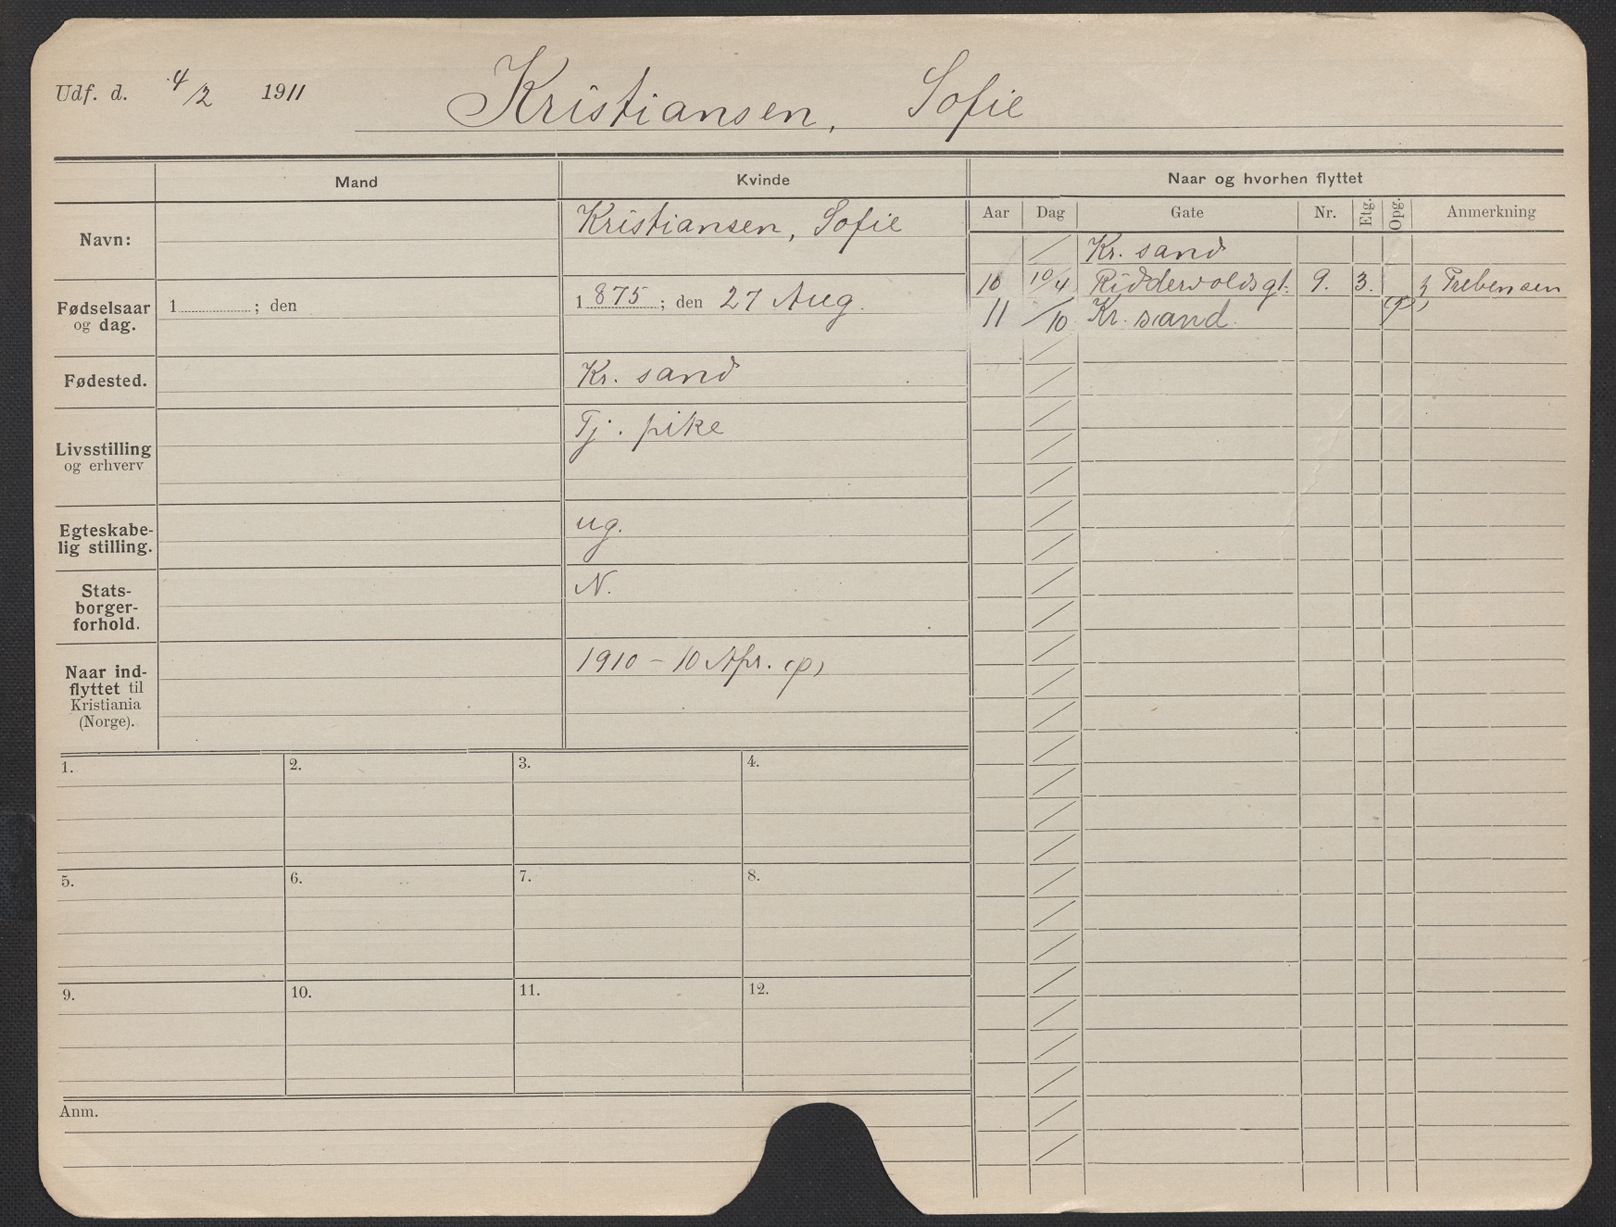 Udf. d. 4/2 1911 Kristiansen, Sofie
Mand Kvinde Naar og hvorhen flyttet
Aar Dag Gate Nr. Etg. Opg. Anmerkning
Navn: Kristiansen, Sofie
/ Kr. sand
10 10/4 Riddervoldsgt. 9. 3. Trebensen
11 /10 Kr. sand. (p)
Fødselsaar
og dag.
1 ; den
1 875 ; den 27 Aug.
Fødested. Kr. sand
Livsstilling
og erhverv
Tj. pike
Egteskabe-
lig stilling.
ug.
Stats-
borger-
forhold.
N.
Naar ind-
flyttet til
Kristiania
(Norge).
1910 – 10 Apr. (p)
1. 2. 3. 4.
5. 6. 7. 8.
9. 10. 11. 12.
Anm.